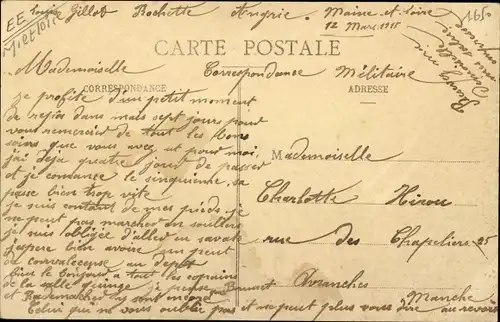 EE Louis Gillot Rochette Angrie. Maine et Loire
12 Mars 1915
CARTE POSTALE
Mademoiselle Correspondance Militaire
CORRESPONDANCE ADRESSE
je profite d'un petit moment
de repos dans mais sept jours pour
vous remercier de tout les bons
soins que vous avez ut pour moi,
j'ai deja quatre jour de passer
et je comance le sinquienne, sa
passe bien trop vite
je suis contant de mes pieds je
ne peut pas marcher en soulliers
je suis obligée d'aller en savate
j'espese bien avoire un peut
de convalecense au depot
bien le bonjour a tout les copains
de la salle quinze je pense que Brumant
et Rademacher y sont encore
Celui qui ne vous oublie pas et ne peut plus vous dire au revoire
Mademoiselle
Charlotte Hirou
rue des Chapeliers 25
Avranches
Manche